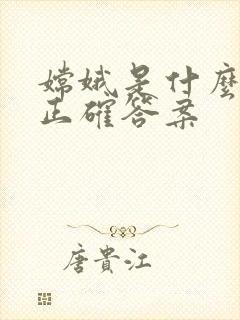 嫦娥是什麼
正確答案
唐貴江